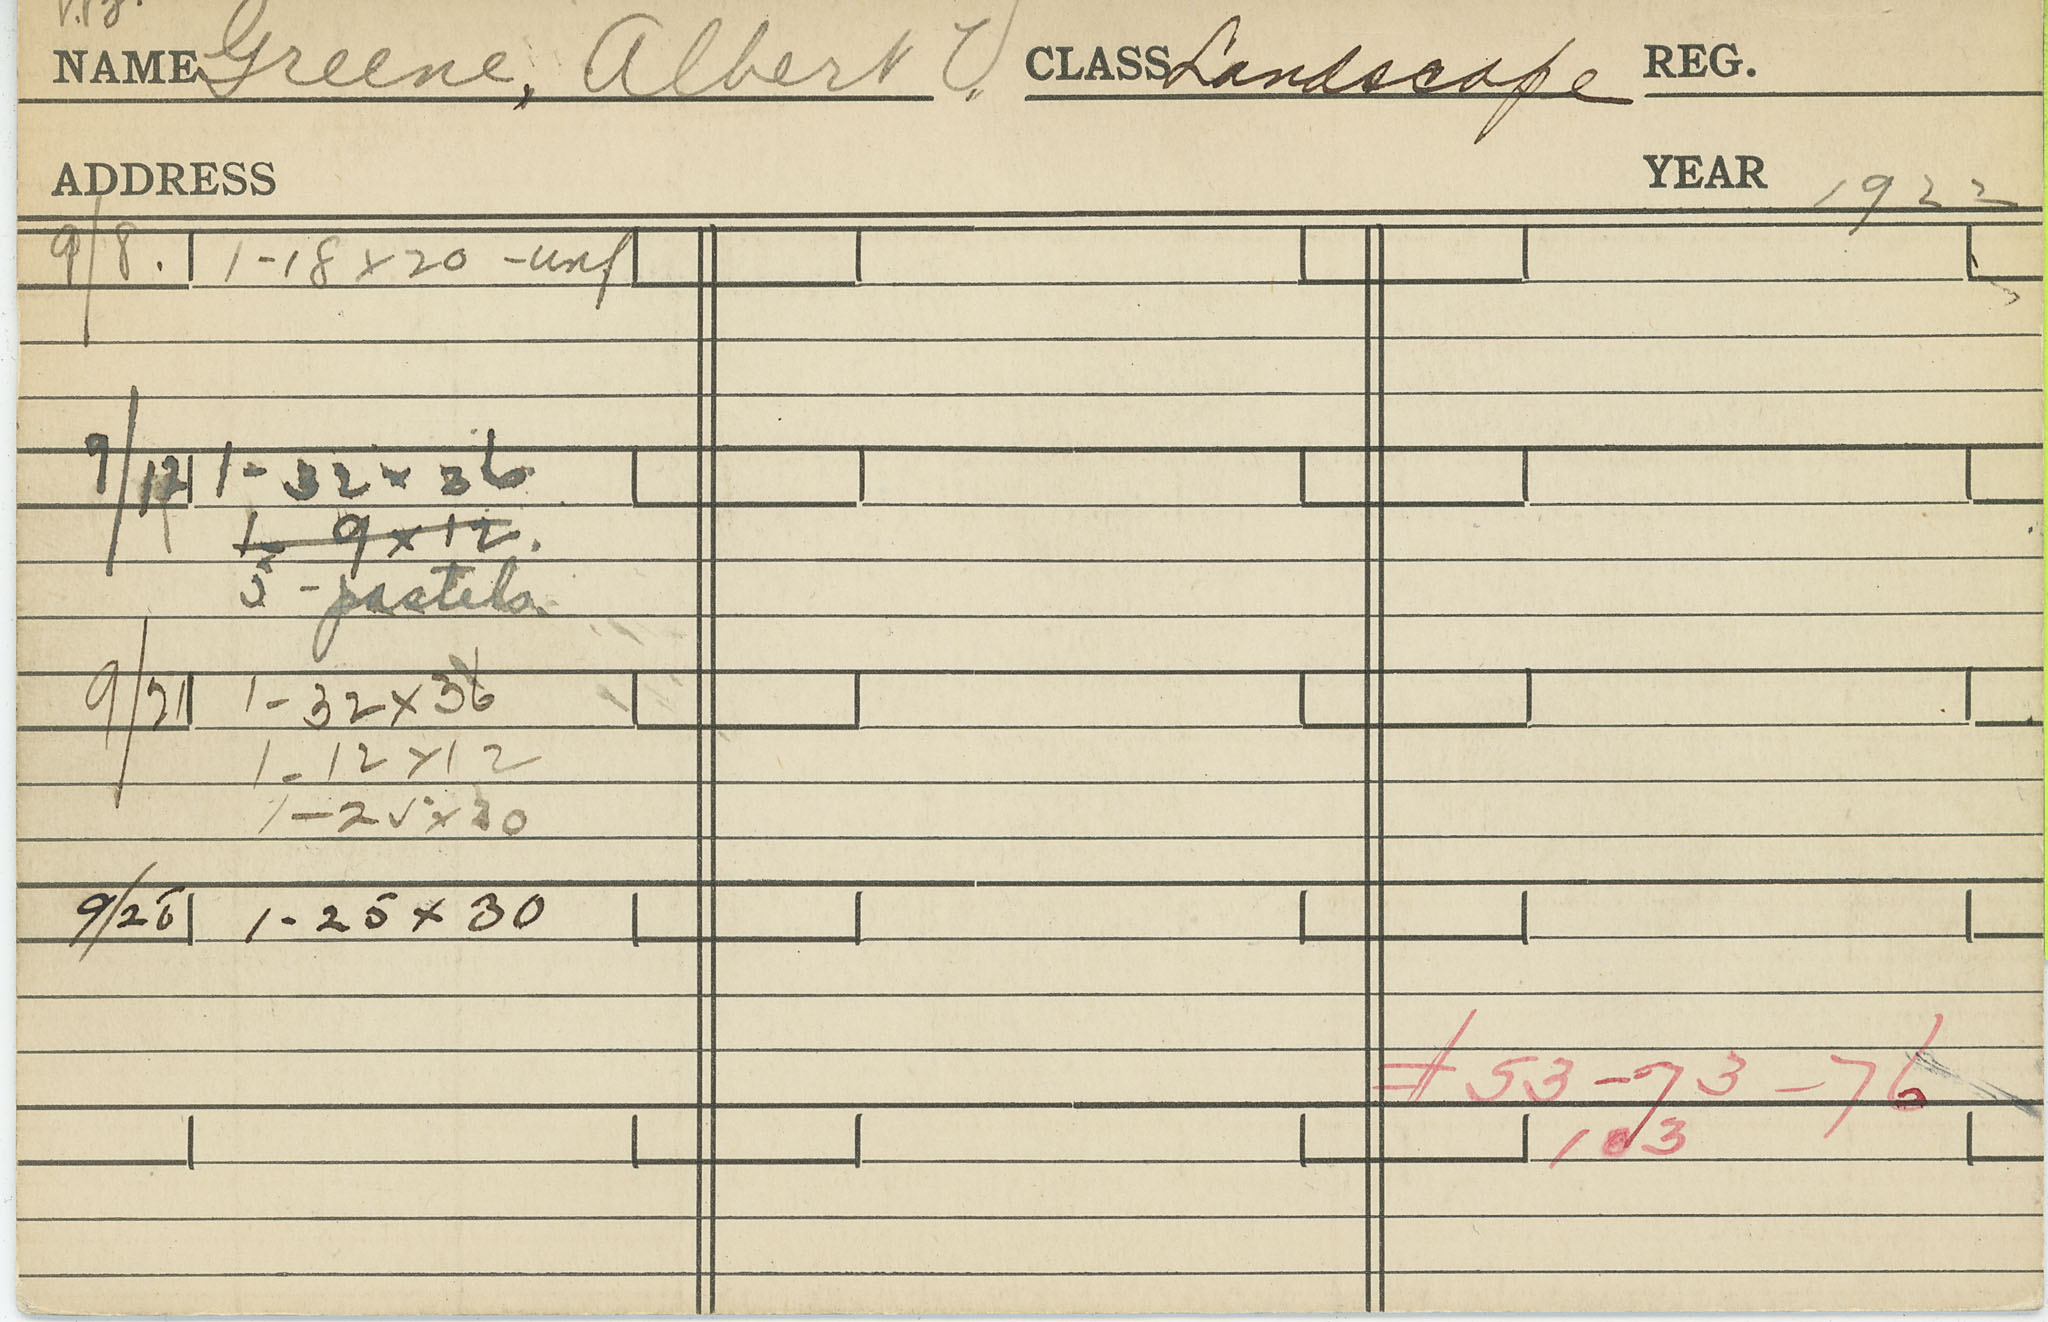 NAME Greene, Albert T. CLASS Landscape REG.
ADDRESS YEAR 1922
9/8. 1-18 x 20 - unf
9/12 1 - 32 x 36
1 - 9 x 12.
5 - pastels.
9/21 1 - 32 x 36
1 - 12 x 12
1 - 25 x 30
9/26 1 - 25 x 30
# 53 - 73 - 76
103